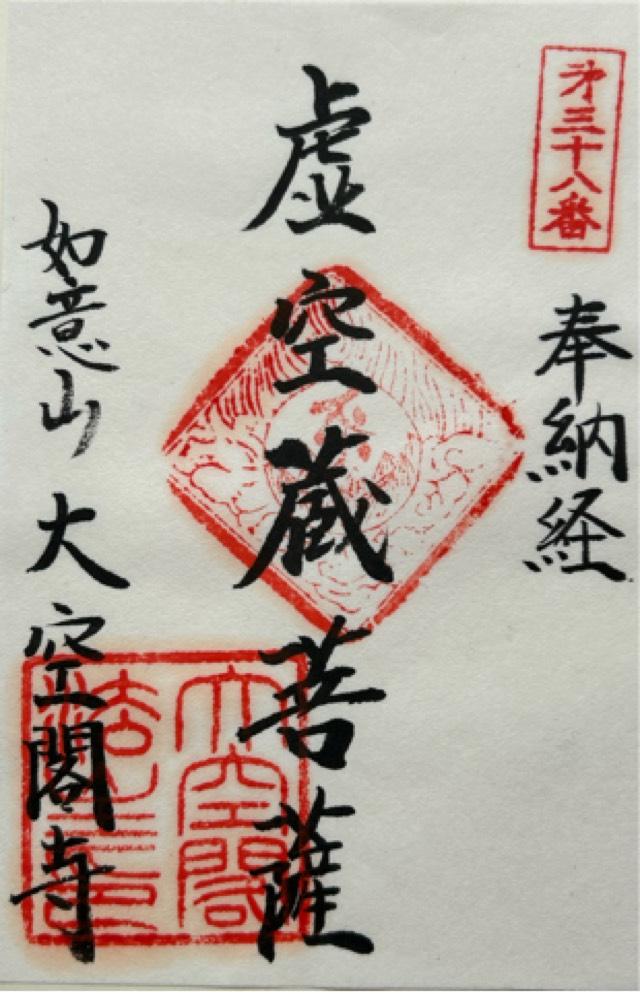 第三十八番
奉納経
虚空蔵菩薩
如意山 大空閣寺
大空閣